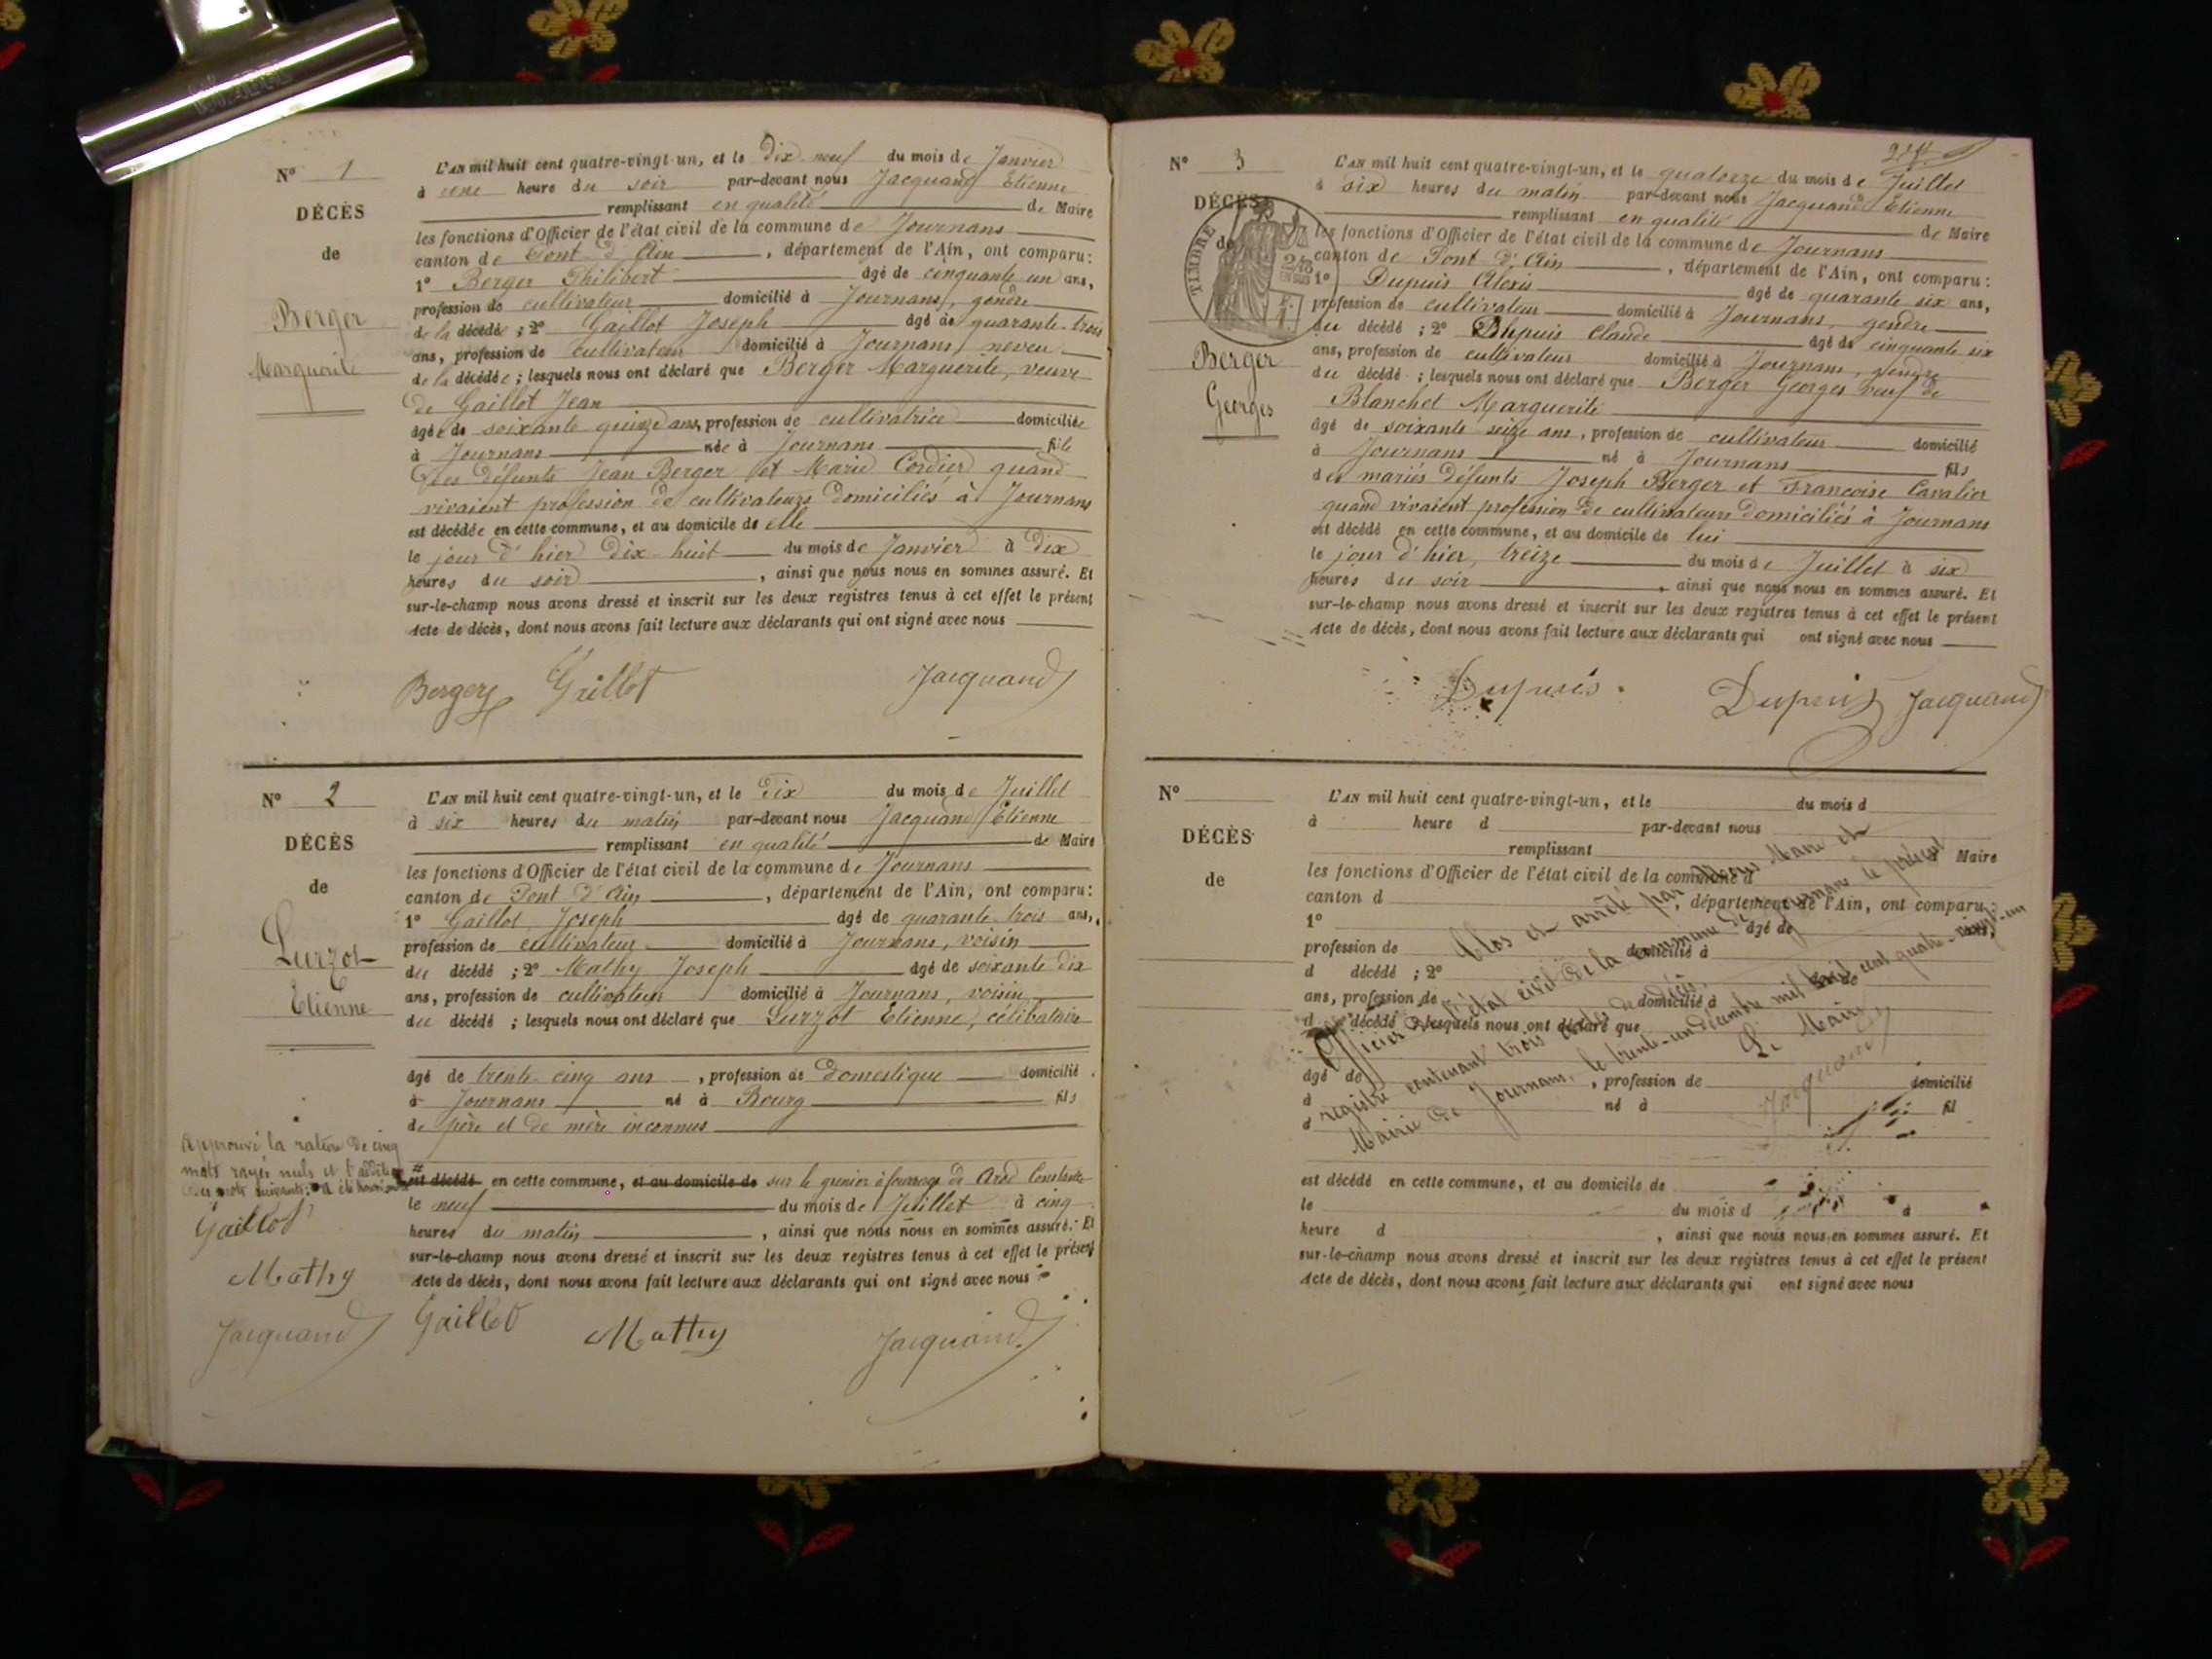 N° 1
DÉCÈS
de
Berger
Marguerite
L'AN mil huit cent quatre-vingt-un, et le Dix neuf du mois de Janvier
à une heure du soir par-devant nous Jacquand Etienne
remplissant en qualité de Maire
les fonctions d'Officier de l'état civil de la commune de Journans
canton de Pont d'Ain, département de l'Ain, ont comparu:
1° Berger Philibert âgé de cinquante un ans,
profession de cultivateur domicilié à Journans, gendre
de la décédée; 2° Gaillot Joseph âgé de quarante-trois
ans, profession de cultivateur domicilié à Journans, neveu
de la décédée; lesquels nous ont déclaré que Berger Marguerite, veuve
de Gaillot Jean
âgée de soixante quinze ans, profession de cultivatrice domiciliée
à Journans née à Journans fille
des défunts Jean Berger et Marie Cordier quand
vivaient profession de cultivateurs domiciliés à Journans
est décédée en cette commune, et au domicile de elle
le jour d'hier dix-huit du mois de Janvier à Dix
heures du soir, ainsi que nous nous en sommes assuré. Et
sur-le-champ nous avons dressé et inscrit sur les deux registres tenus à cet effet le présent
Acte de décès, dont nous avons fait lecture aux déclarants qui ont signé avec nous
Berger Gaillot Jacquand
N° 2
DÉCÈS
de
Lurzot
Etienne
L'AN mil huit cent quatre-vingt-un, et le dix du mois de Juillet
à six heures du matin par-devant nous Jacquand Etienne
remplissant en qualité de Maire
les fonctions d'Officier de l'état civil de la commune de Journans
canton de Pont d'Ain, département de l'Ain, ont comparu:
1° Gaillot Joseph âgé de quarante-trois ans,
profession de cultivateur domicilié à Journans, voisin
du décédé; 2° Mathy Joseph âgé de soixante dix
ans, profession de cultivateur domicilié à Journans, voisin
du décédé; lesquels nous ont déclaré que Lurzot Etienne, célibataire
âgé de trente-cinq ans, profession de domestique domicilié
à Journans né à Bourg fils
de père et de mère inconnus
est décédé en cette commune, et au domicile de sur le grenier à fourrage de
le neuf du mois de Juillet à cinq
heures du matin, ainsi que nous nous en sommes assuré. Et
sur-le-champ nous avons dressé et inscrit sur les deux registres tenus à cet effet le présent
Acte de décès, dont nous avons fait lecture aux déclarants qui ont signé avec nous
Approuvé la rature de cinq
mots rayés nuls et l'addition
des mots suivants: a été
Gaillot
Mathy
Jacquand
Gaillot Mathy Jacquand
N° 3
DÉCÈS
de
TIMBRE
Berger
Georges
L'AN mil huit cent quatre-vingt-un, et le quatorze du mois de Juillet
à six heures du matin par-devant nous Jacquand Etienne
remplissant en qualité de Maire
les fonctions d'Officier de l'état civil de la commune de Journans
canton de Pont d'Ain, département de l'Ain, ont comparu:
1° Dupuis Alexis âgé de quarante six ans,
profession de cultivateur domicilié à Journans, gendre
du décédé; 2° Dupuis Claude âgé de cinquante six
ans, profession de cultivateur domicilié à Journans, gendre
du décédé; lesquels nous ont déclaré que Berger Georges veuf de
Blanchet Marguerite
âgé de soixante seize ans, profession de cultivateur domicilié
à Journans né à Journans fils
des mariés défunts Joseph Berger et Françoise Cavalier
quand vivaient profession de cultivateurs domiciliés à Journans
est décédé en cette commune, et au domicile de lui
le jour d'hier, treize du mois de Juillet à six
heures du soir, ainsi que nous nous en sommes assuré. Et
sur-le-champ nous avons dressé et inscrit sur les deux registres tenus à cet effet le présent
Acte de décès, dont nous avons fait lecture aux déclarants qui ont signé avec nous
Dupuis. Dupuis Jacquand
N°
DÉCÈS
de
L'AN mil huit cent quatre-vingt-un, et le du mois d
à heure d par-devant nous
remplissant d Maire
les fonctions d'Officier de l'état civil de la commune d
canton d, département de l'Ain, ont comparu:
1° âgé de ans,
profession de domicilié à
d décédé; 2° âgé de
ans, profession de domicilié à
d décédé; lesquels nous ont déclaré que
âgé de, profession de domicilié
à né à fil
d
est décédé en cette commune, et au domicile de
le du mois d à
heure d, ainsi que nous nous en sommes assuré. Et
sur-le-champ nous avons dressé et inscrit sur les deux registres tenus à cet effet le présent
Acte de décès, dont nous avons fait lecture aux déclarants qui ont signé avec nous
Clos et arrêté par Nous Maire et
Officier de l'état civil de la commune de Journans le présent
registre contenant trois actes de décès.
Mairie de Journans, le trente-un décembre mil huit cent quatre-vingt-un
Le Maire
Jacquand